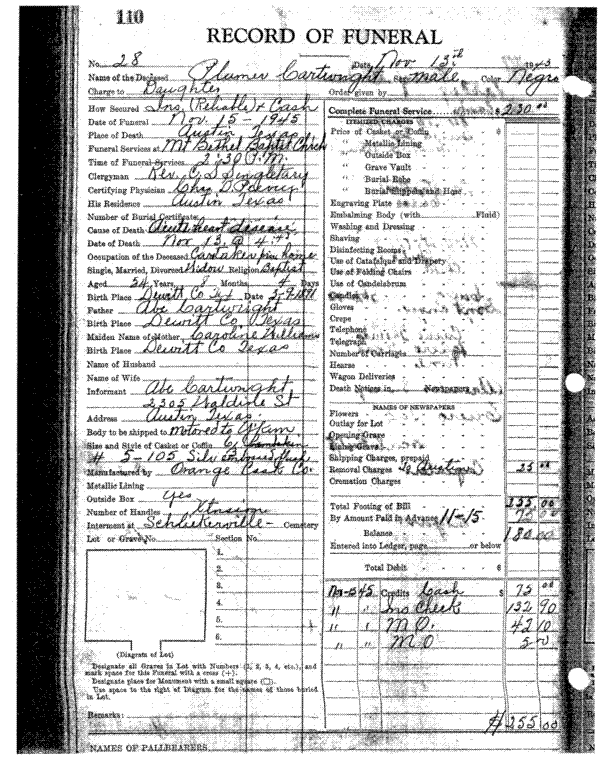 110
RECORD OF FUNERAL
No. 28 Date Nov 13th 1945
Name of the Deceased Plumer Cartwright Sex male Color Negro
Charge to Daughter Order given by
How Secured Ins. (Reliable) + Cash
Date of Funeral Nov. 15 - 1945
Place of Death Austin Texas
Funeral Services at Mt Bethel Baptist Church
Time of Funeral Services 2:30 P.M.
Clergyman Rev. C. S. Singletary
Certifying Physician
His Residence Austin Texas
Number of Burial Certificate
Cause of Death Acute heart disease
Date of Death Nov 13, @ 4
Occupation of the Deceased Caretaker home
Single, Married, Divorced Widow Religion Baptist
Aged 54 Years 8 Months 4 Days
Birth Place Dewitt Co Tex Date 3-9-1891
Father Abe Cartwright
Birth Place Dewitt Co. Texas
Maiden Name of Mother Caroline Williams
Birth Place Dewitt Co Texas
Name of Husband
Name of Wife
Informant Abe Cartwright
2305 St
Address Austin Texas.
Body to be shipped to Motored to
Size and Style of Casket or Coffin
# 5-105 Silver
Manufactured by Orange Cask Co.
Metallic Lining
Outside Box yes
Number of Handles
Interment at Cemetery
Lot or Grave No. Section No.
1.
2.
3.
4.
5.
6.
(Diagram of Lot)
Designate all Graves in Lot with Numbers (1, 2, 3, 4, etc.), and
mark space for this Funeral with a cross (+).
Designate place for Monument with a small square (□).
Use space to the right of Diagram for the names of those buried
in Lot.
Remarks:
NAMES OF PALLBEARERS
Complete Funeral Service $ 230 00
ITEMIZED CHARGES
Price of Casket or Coffin $
" Metallic Lining
" Outside Box
" Grave Vault
" Burial Robe
" Burial Slippers and Hose
Engraving Plate
Embalming Body (with Fluid)
Washing and Dressing
Shaving
Disinfecting Rooms
Use of Catafalque and Drapery
Use of Folding Chairs
Use of Candelabrum
Candles
Gloves
Crepe
Telephone
Telegraph
Number of Carriages
Hearse
Wagon Deliveries
Death Notices in Newspapers
NAMES OF NEWSPAPERS
Flowers
Outlay for Lot
Opening Grave
Lining Grave
Shipping Charges, prepaid
Removal Charges to Austin 25 00
Cremation Charges
Total Footing of Bill 255 00
By Amount Paid in Advance 11-15 75 00
Balance 180.00
Entered into Ledger, page or below
Total Debit $
Nov-15-45 Credits Cash $ 75 00
" " Ins Check 132 90
" " M.O. 42 10
" " M O 5
$ 255 00